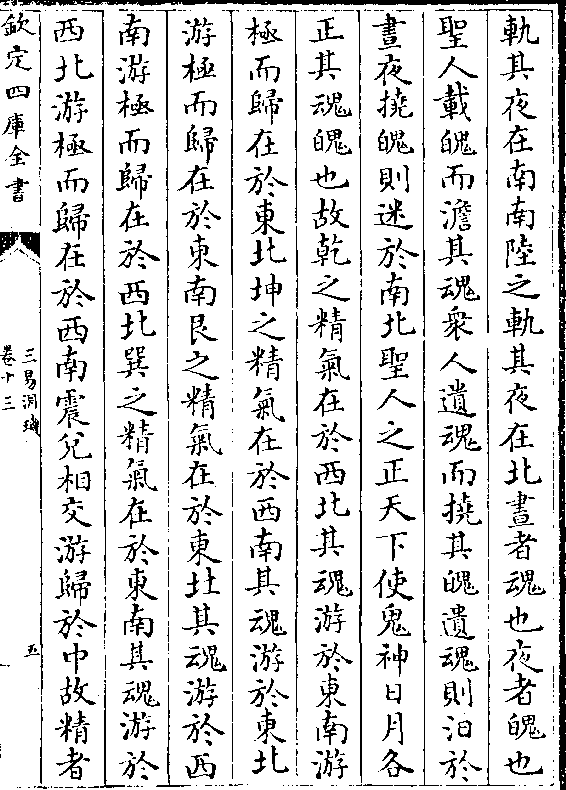 軌其夜在南南陸之軌其夜在北晝者魂也夜者魄也
聖人載魄而澹其魂衆人遺魂而撓其魄遺魂則汨於
晝夜撓魄則迷於南北聖人之正天下使鬼神日月各
正其魂魄也故乾之精氣在於西北其魂游於東南游
極而歸在於東北坤之精氣在於西南其魂游於東北
游極而歸在於東南艮之精氣在於東北其魂游於西
南游極而歸在於西北巽之精氣在於東南其魂游於
西北游極而歸在於西南震兌相交游歸於中故精者
欽定四庫全書
三易洞璣
卷十三
五